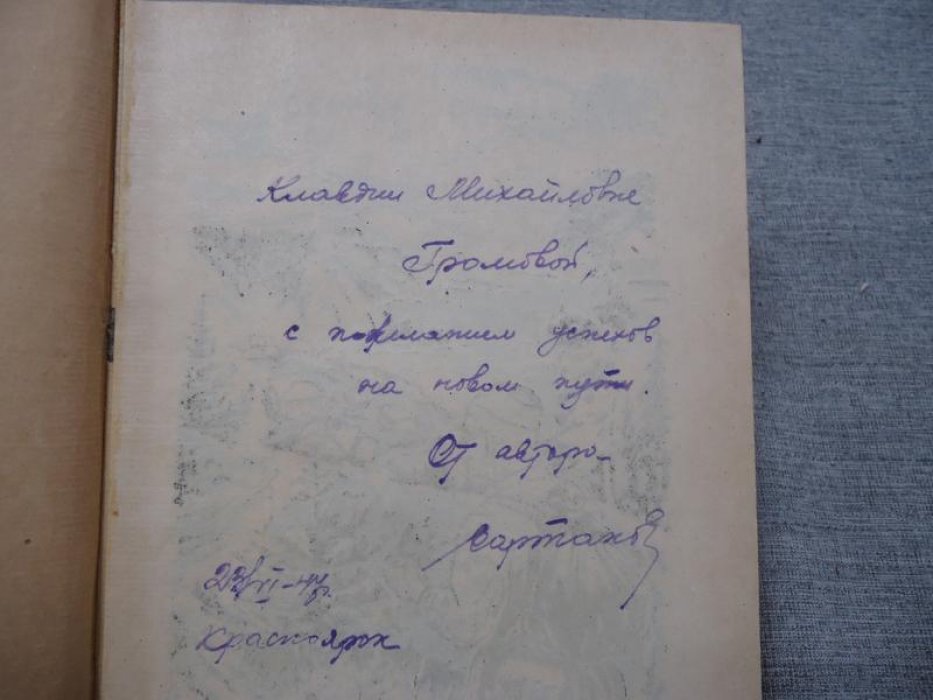 Клавдии Михайловне
Громовой,
с пожеланием успехов
на новом пути.
От автора
Сартаков
23/VI-47г.
Красноярск